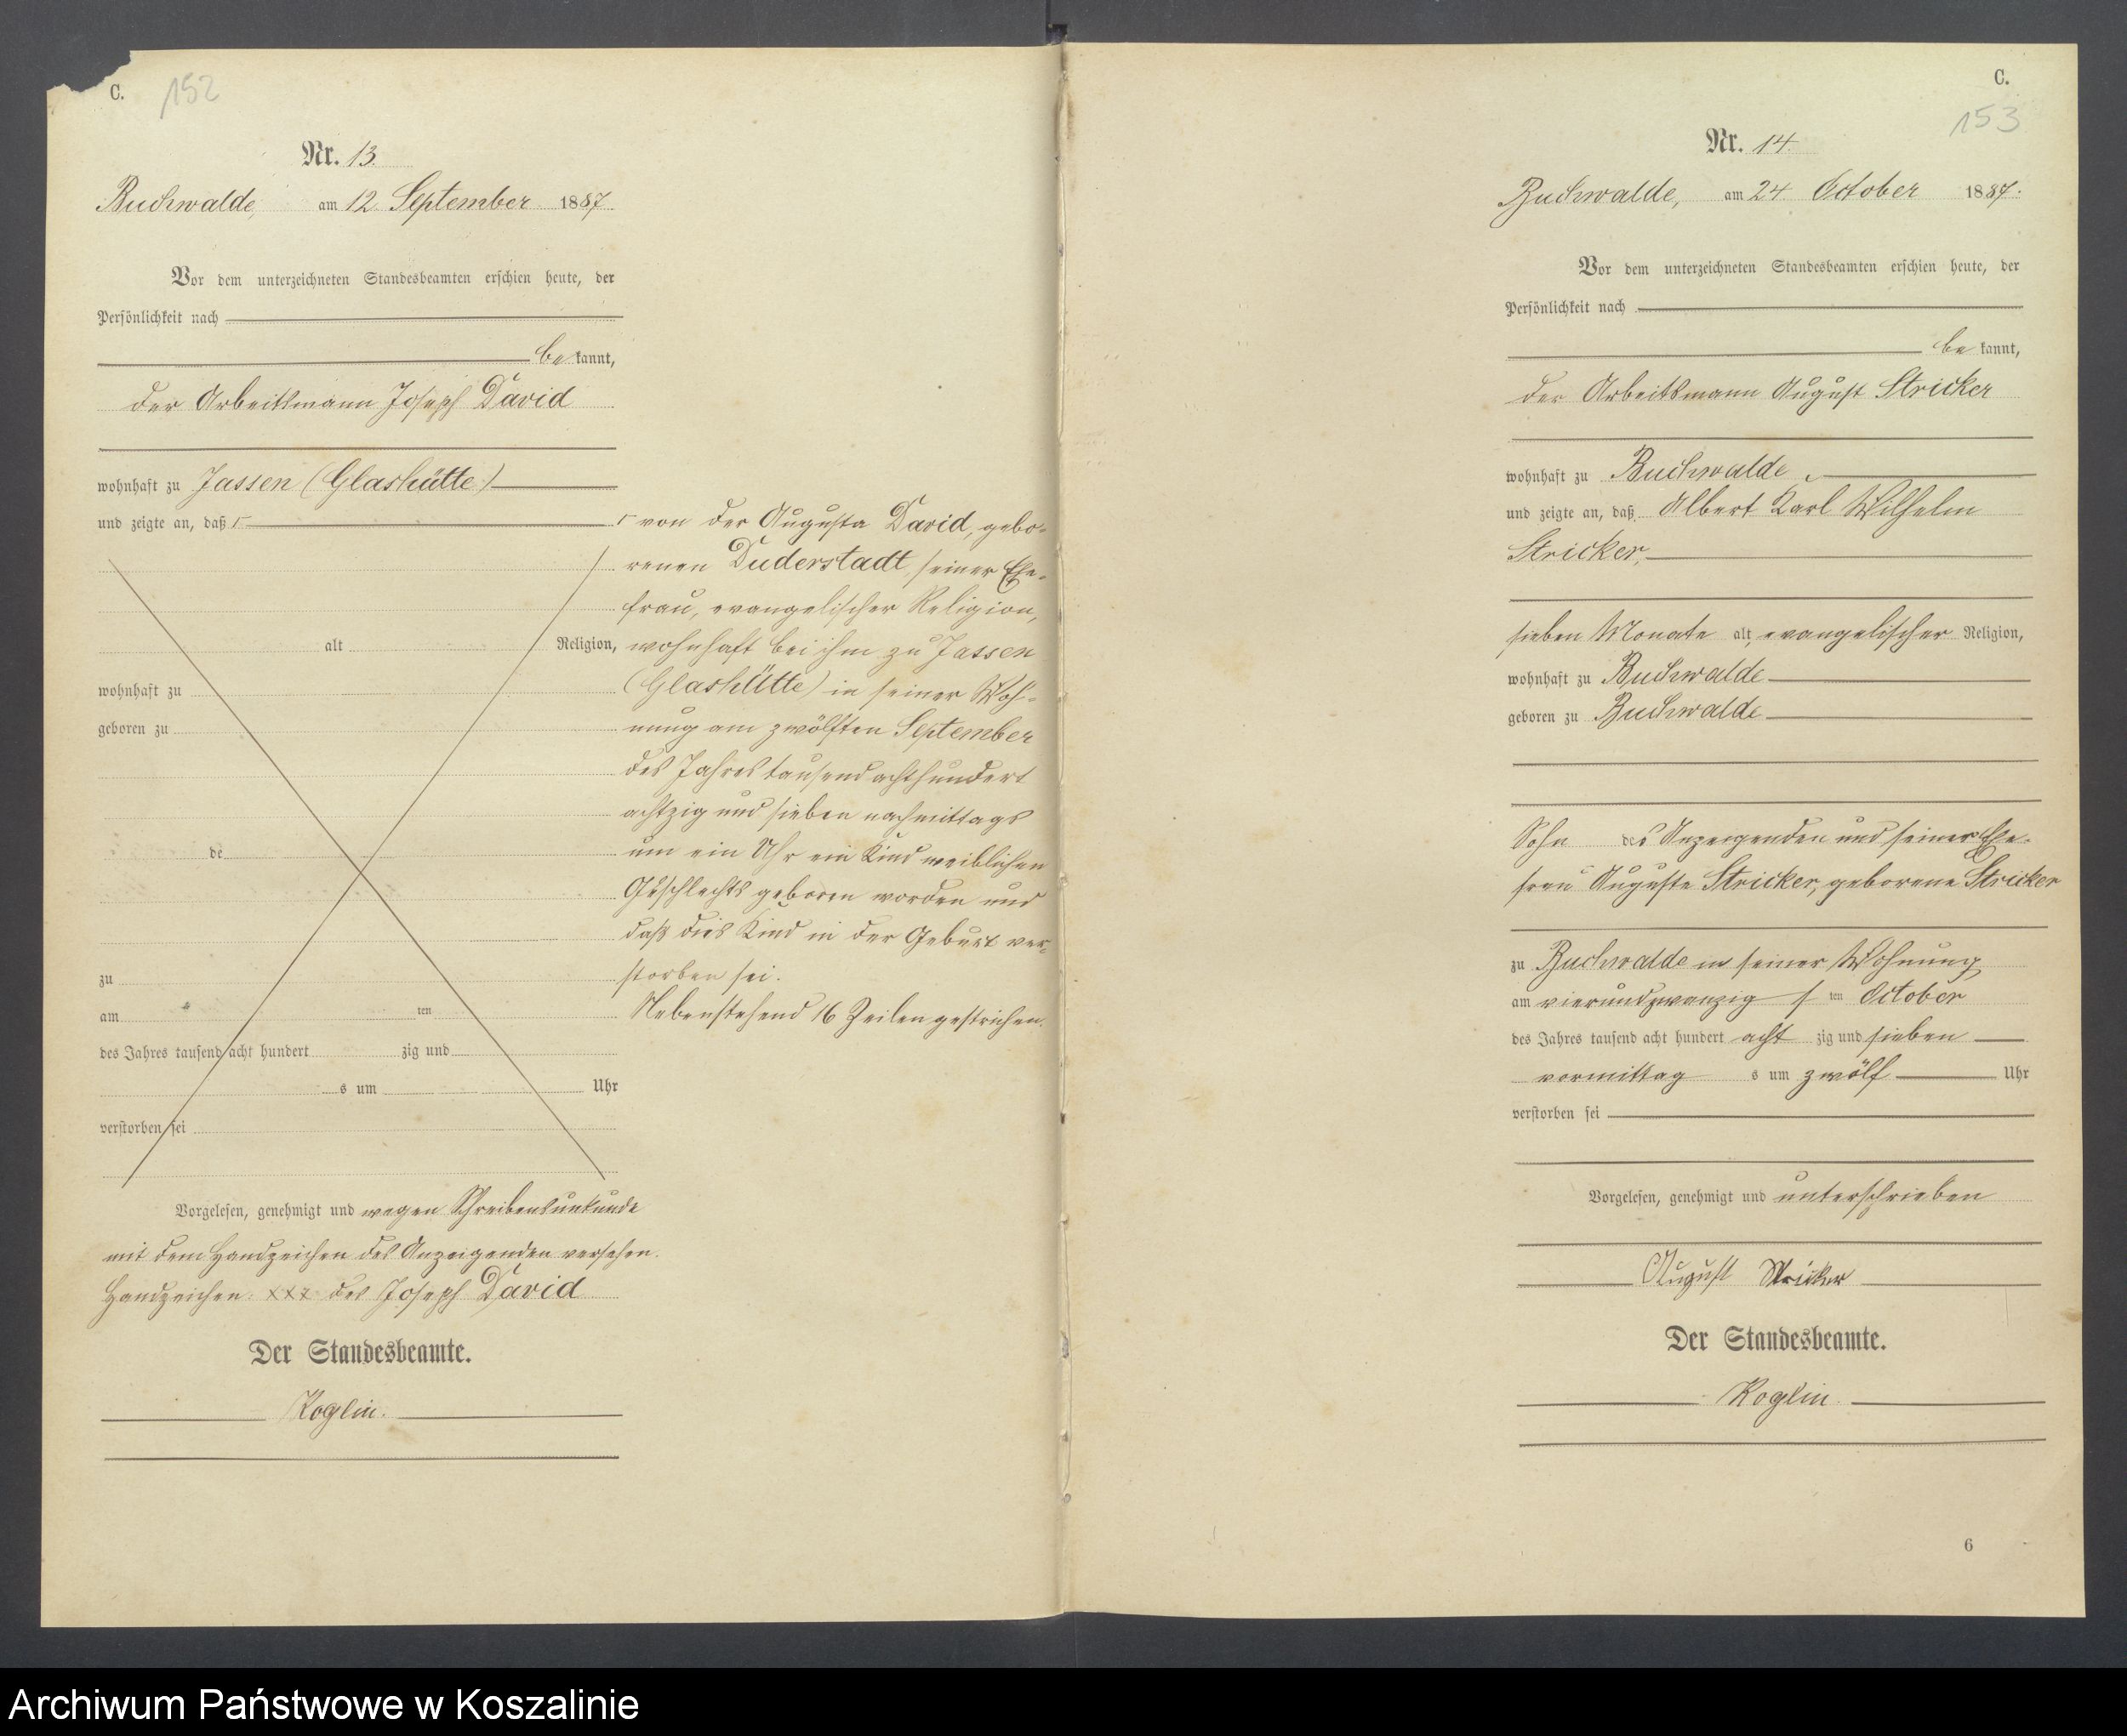 C. 152
Nr. 13.
Buchwalde, am 12. September 1887
Vor dem unterzeichneten Standesbeamten erschien heute, der
Persönlichkeit nach
bekannt,
der Arbeitsmann Joseph David
wohnhaft zu Jassen (Glashütte)
und zeigte an, daß Γ
alt Religion,
wohnhaft zu
geboren zu
de
zu
am ten
des Jahres tausend acht hundert zig und
s um Uhr
verstorben sei
Γ von der Augusta David, gebo-
renen Duderstadt, seiner Ehe-
frau, evangelischer Religion,
wohnhaft bei ihm zu Jassen
(Glashütte) in seiner Woh-
nung am zwölften September
des Jahres tausend achthundert
achtzig und sieben nachmittags
um ein Uhr ein Kind weiblichen
Geschlechts geboren worden und
daß dies Kind in der Geburt ver-
storben sei.
Nebenstehend 16 Zeilen gestrichen.
Vorgelesen, genehmigt und wegen Schreibensunkunde
mit dem Handzeichen des Anzeigenden versehen.
Handzeichen xxx des Joseph David
Der Standesbeamte.
Koglin.
C.
153
Nr. 14.
Buchwalde, am 24. October 1887.
Vor dem unterzeichneten Standesbeamten erschien heute, der
Persönlichkeit nach
bekannt,
der Arbeitsmann August Stricker
wohnhaft zu Buchwalde
und zeigte an, daß Albert Karl Wilhelm
Stricker,
sieben Monate alt, evangelischer Religion,
wohnhaft zu Buchwalde
geboren zu Buchwalde
Sohn des Anzeigenden und seiner Ehe-
frau Auguste Stricker, geborene Stricker
zu Buchwalde in seiner Wohnung
am vierundzwanzigsten October
des Jahres tausend acht hundert achtzig und sieben
vormittags um zwölf Uhr
verstorben sei
Vorgelesen, genehmigt und unterschrieben
August Stricker
Der Standesbeamte.
Koglin.
6
Archiwum Państwowe w Koszalinie